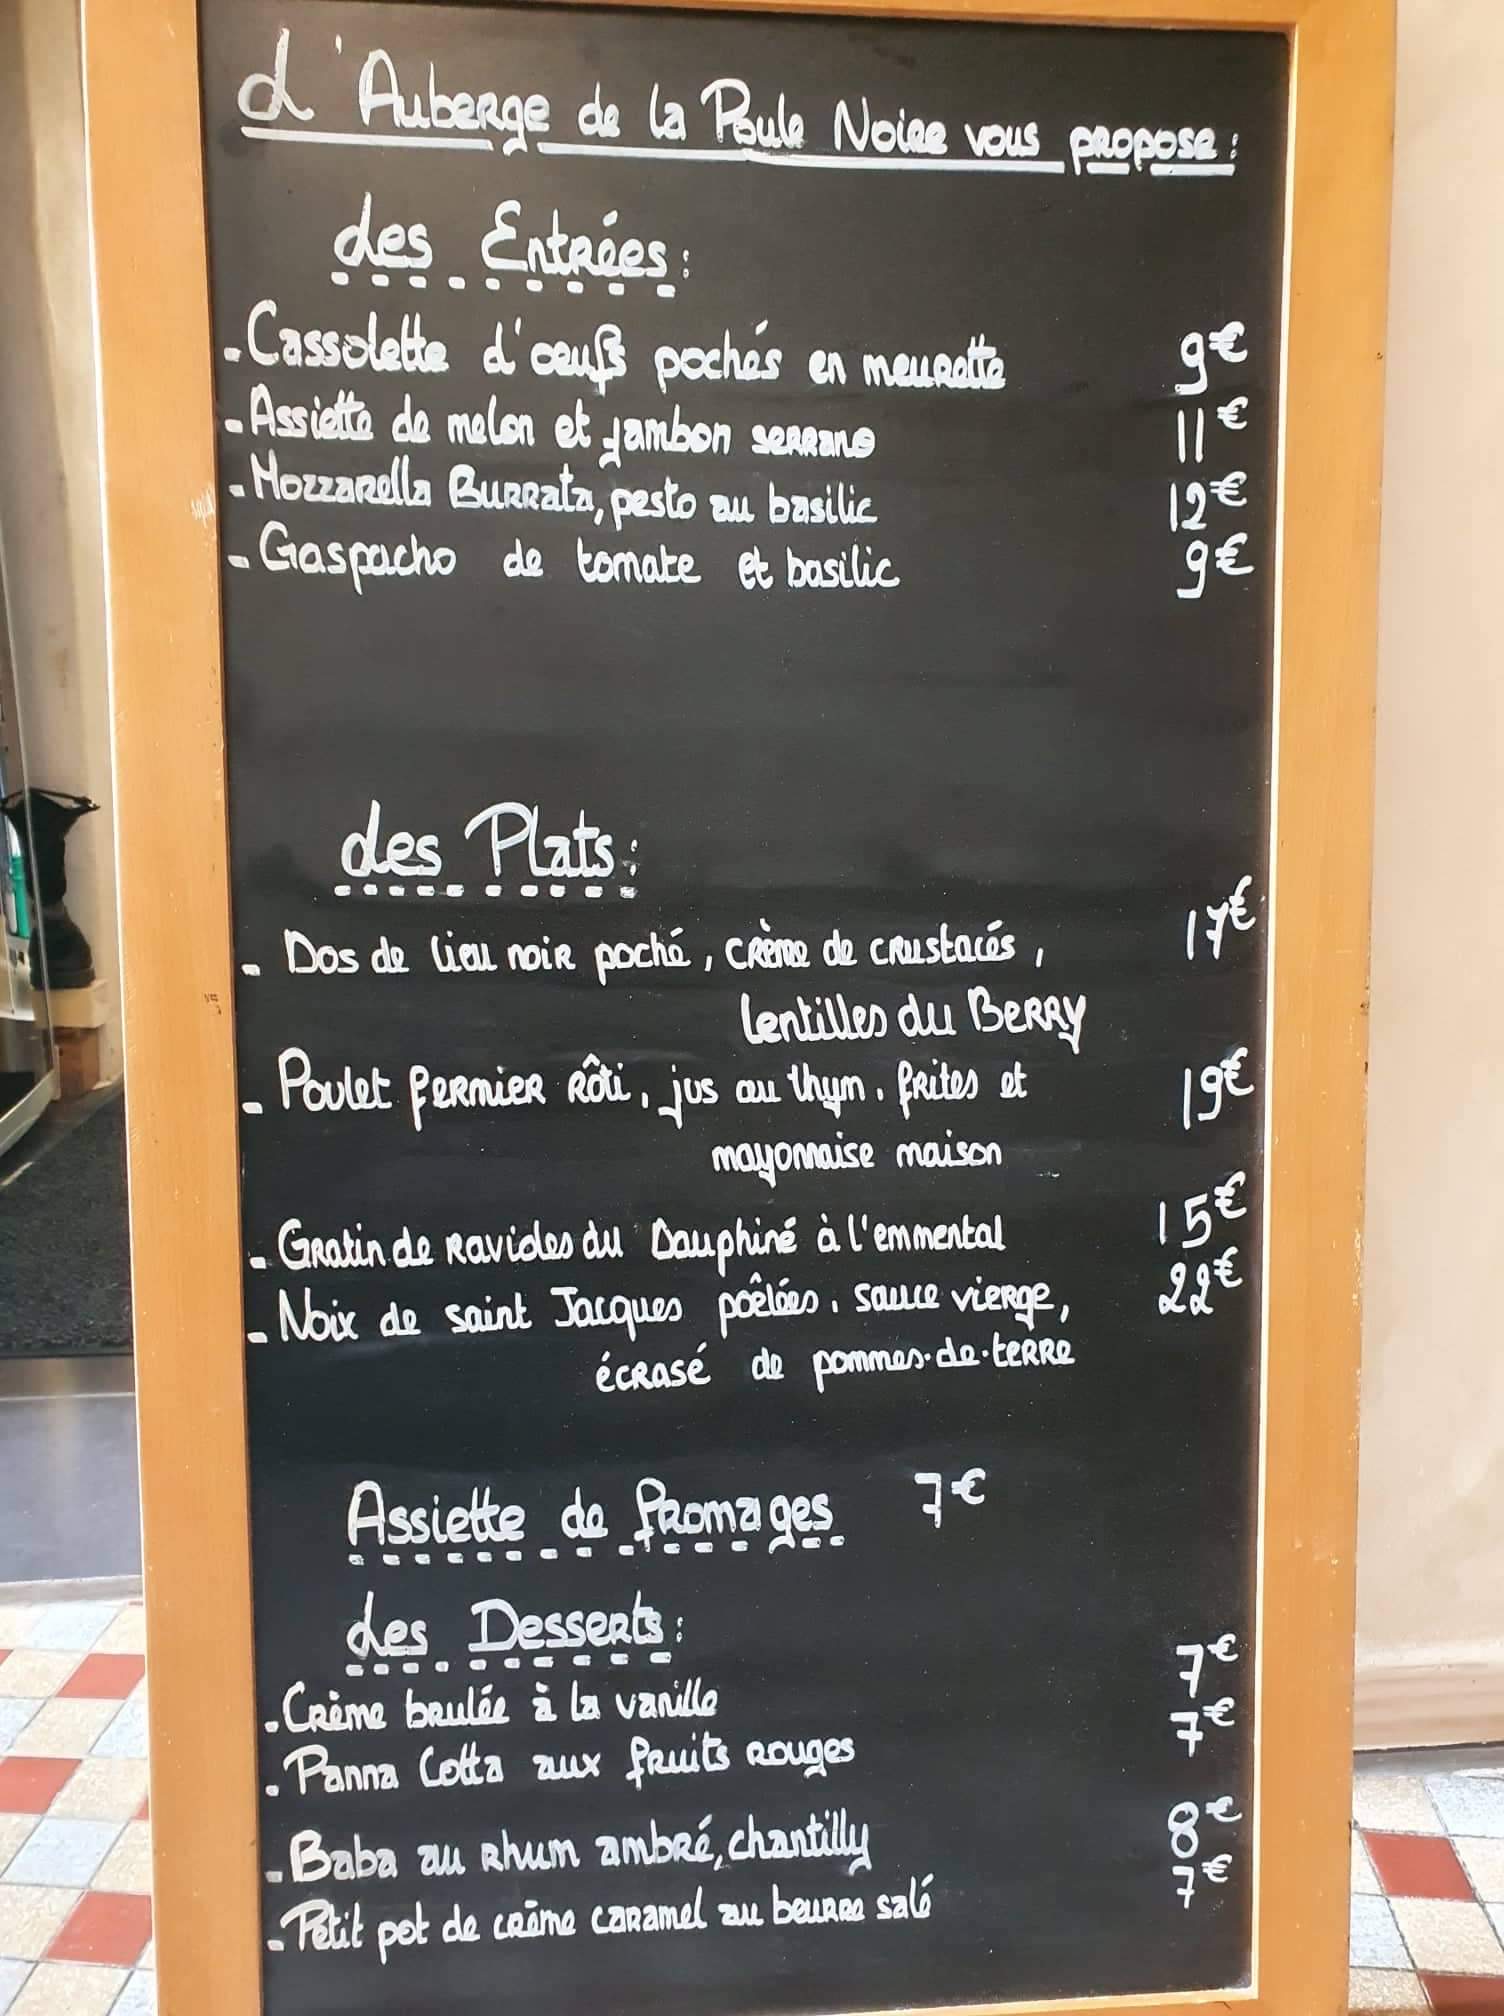 L'Auberge de la Poule Noire vous propose :
des Entrées :
- Cassolette d'œufs pochés en meurette 9€
- Assiette de melon et jambon serrano 11€
- Mozzarella Burrata, pesto au basilic 12€
- Gaspacho de tomate et basilic 9€
des Plats :
- Dos de lieu noir poché, crème de crustacés, 17€
lentilles du Berry
- Poulet fermier rôti, jus au thym, frites et 19€
mayonnaise maison
- Gratin de ravioles du Dauphiné à l'emmental 15€
- Noix de saint Jacques poêlées, sauce vierge, 22€
écrasé de pommes-de-terre
Assiette de fromages 7€
des Desserts :
- Crème brulée à la vanille 7€
- Panna Cotta aux fruits rouges 7€
- Baba au rhum ambré, chantilly 8€
- Petit pot de crème caramel au beurre salé 7€